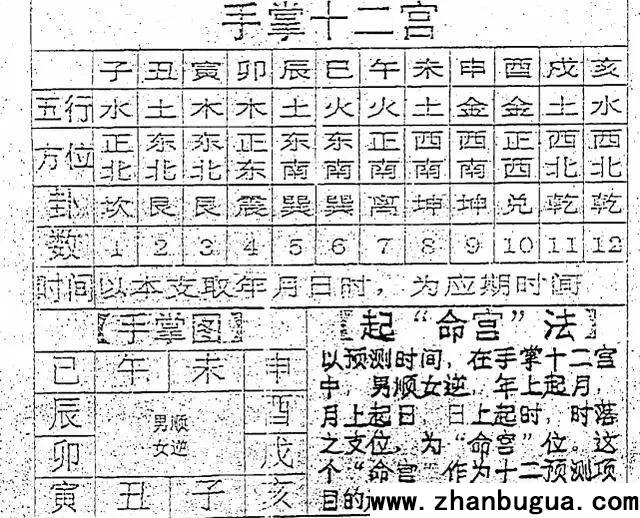 手掌十二宫
子 丑 寅 卯 辰 巳 午 未 申 酉 戌 亥
五行 水 土 木 木 土 火 火 土 金 金 土 水
方位 正北 东北 东北 正东 东南 东南 正南 西南 西南 正西 西北 西北
卦 坎 艮 艮 震 巽 巽 离 坤 坤 兑 乾 乾
数 1 2 3 4 5 6 7 8 9 10 11 12
时间 以本支取年月日时，为应期时间
【手掌图】
巳 午 未 申
辰 酉
男顺
女逆
卯 戌
寅 丑 子 亥
【起“命宫”法】
以预测时间，在手掌十二宫
中，男顺女逆，年上起月，
月上起日，日上起时，时落
之支位，为“命宫”位。这
个“命宫”作为十二预测项
目的
www.zhanbugua.com